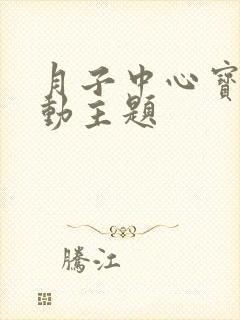 月子中心寳
動主題
騰江